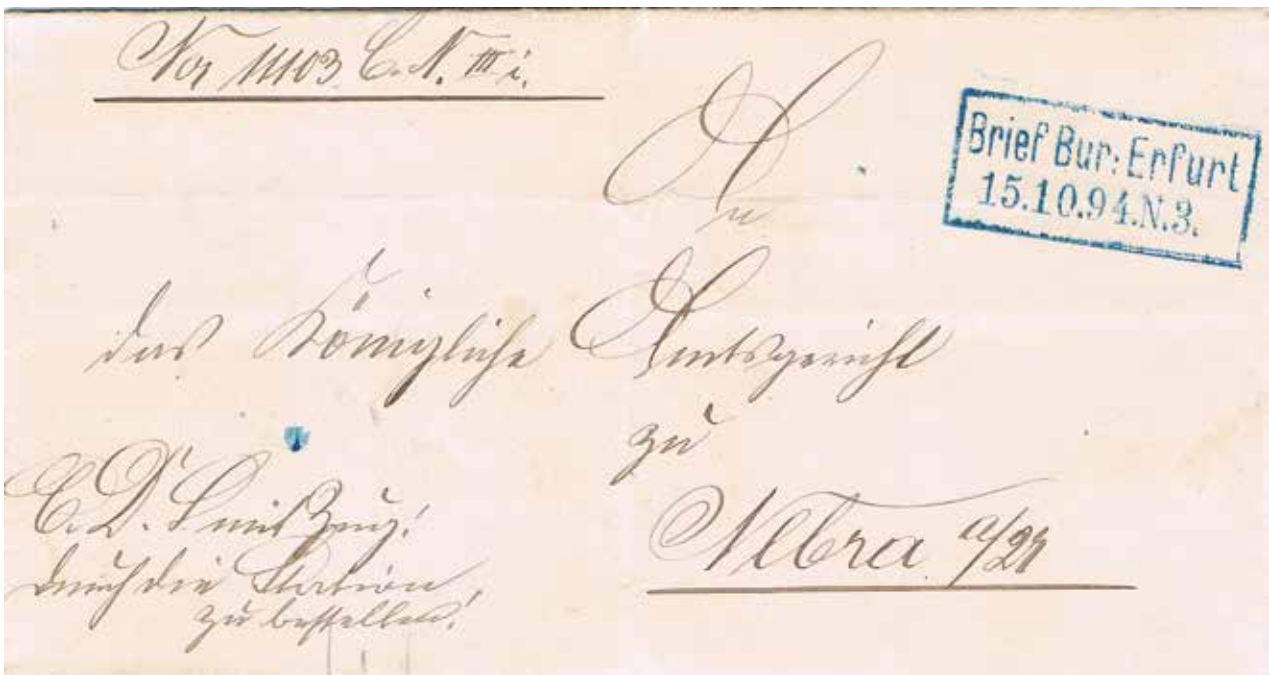 Nor 11103 C. N. III i.
Brief Bur: Erfurt
15.10.94.N.3.
An
das Königliche Amtsgericht
zu
Nebra a/U
E. D. S. mit Zug!
durch die Station,
zu bestellen!